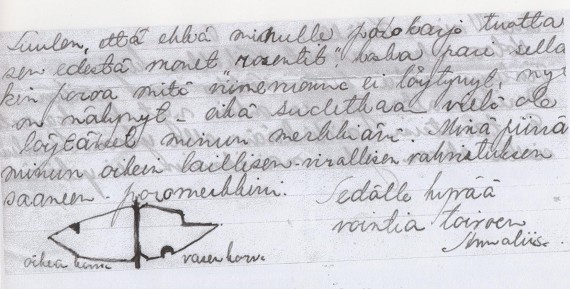 Luulen, että ehkä minulle porokarjo tuotta
sen edestä monet rosentit, vaha pari sella
kin poroa mitä viimevuonna ei löytynyt, nyt
on nähynyt - eikä sudetkaan vielä ole
löytänet minun merkkiäni. Minä piirrä
minun oikein laillisen-virallisen vahvistuksen
saaneen - poromerkkini.
Sedälle hyvää
vointia toivoen
Annaliisa.
oikea korva
vasen korva